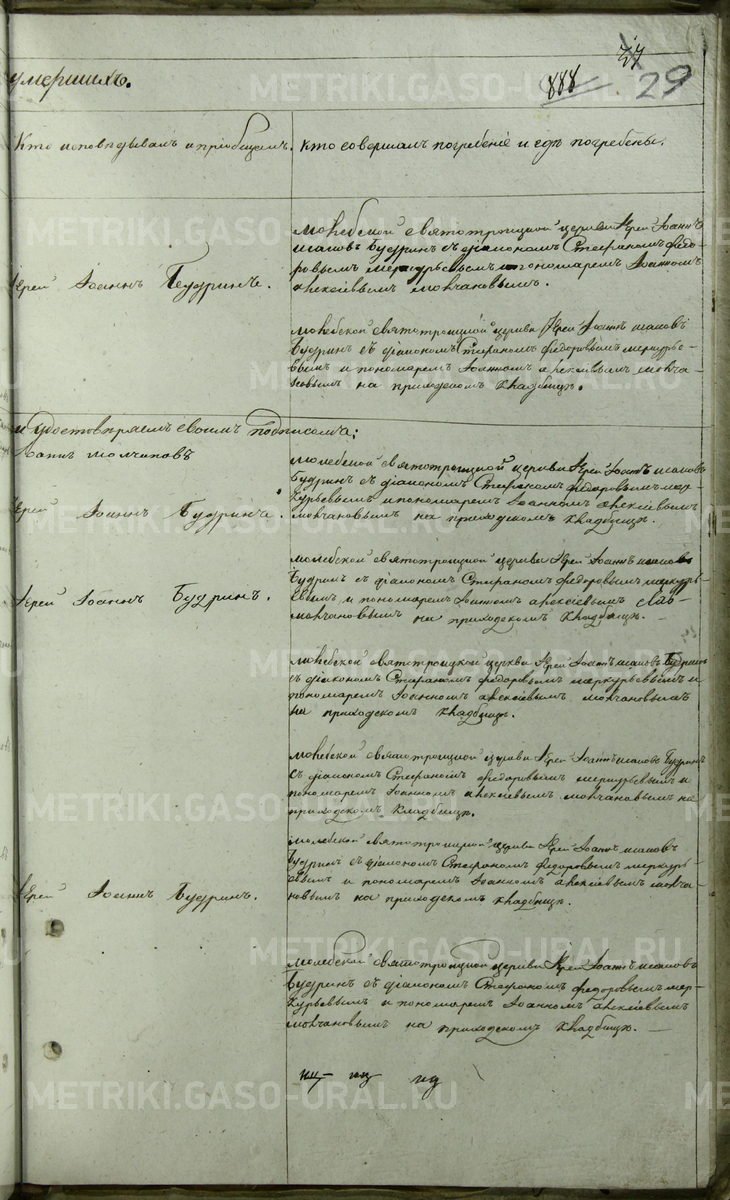 77
умершихъ.
888
29
Кто исповѣдывалъ и пріобщалъ.
кто совершалъ погребеніе и гдѣ погребены.
Молебской Святотроицкой церкви Іерей Іоаннъ
Будринъ съ діакономъ Стефаномъ Федо-
ровымъ Меркурьевымъ и пономаремъ Іоанномъ
Алексіевымъ Молчановымъ.
Іерей Іоаннъ Будринъ.
Молебской Святотроицкой церкви Іерей Іоаннъ
Будринъ съ діакономъ Стефаномъ Федоровымъ Меркурье-
вымъ и пономаремъ Іоанномъ Алексіевымъ Молча-
новымъ на приходскомъ кладбищѣ.
и удостовѣряемъ своимъ подписомъ:
Молебской Святотроицкой церкви Іерей Іоаннъ
Будринъ съ діакономъ Стефаномъ Федоровымъ Мер-
курьевымъ и пономаремъ Іоанномъ Алексіевымъ
Молчановымъ на приходскомъ кладбищѣ.
Іерей Іоаннъ Будринъ.
Молебской Святотроицкой церкви Іерей Іоаннъ
Будринъ съ діакономъ Стефаномъ Федоровымъ Меркурь-
евымъ и пономаремъ Іоанномъ Алексіевымъ
Молчановымъ на приходскомъ кладбищѣ.
Іерей Іоаннъ Будринъ.
Молебской Святотроицкой церкви Іерей Іоаннъ Будринъ
съ діакономъ Стефаномъ Федоровымъ Меркурьевымъ и
пономаремъ Іоанномъ Алексіевымъ Молчановымъ
на приходскомъ кладбищѣ.
Молебской Святотроицкой церкви Іерей Іоаннъ Будринъ
съ діакономъ Стефаномъ Федоровымъ Меркурьевымъ и
пономаремъ Іоанномъ Алексіевымъ Молчановымъ на
приходскомъ кладбищѣ.
Молебской Святотроицкой церкви Іерей Іоаннъ
Будринъ съ діакономъ Стефаномъ Федоровымъ Меркурь-
евымъ и пономаремъ Іоанномъ Алексіевымъ Молча-
новымъ на приходскомъ кладбищѣ.
Іерей Іоаннъ Будринъ.
Молебской Святотроицкой церкви Іерей Іоаннъ
Будринъ съ діакономъ Стефаномъ Федоровымъ Мер-
курьевымъ и пономаремъ Іоанномъ Алексіевымъ
Молчановымъ на приходскомъ кладбищѣ.
METRIKI.GASO-URAL.RU